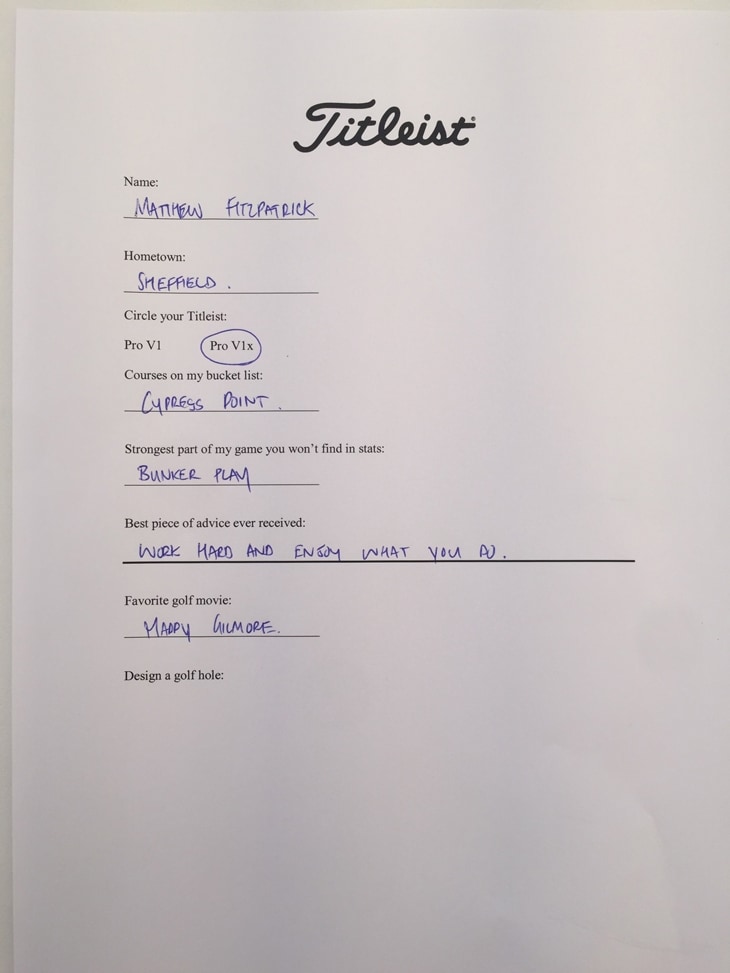 Titleist
Name:
MATTHEW FITZPATRICK
Hometown:
SHEFFIELD.
Circle your Titleist:
Pro V1 Pro V1x
Courses on my bucket list:
CYPRESS POINT.
Strongest part of my game you won't find in stats:
BUNKER PLAY
Best piece of advice ever received:
WORK HARD AND ENJOY WHAT YOU DO.
Favorite golf movie:
HAPPY GILMORE.
Design a golf hole: